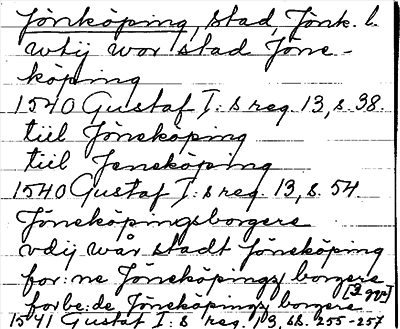 Jönköping, stad, Jönk. l.
wthj wor stad Jöne-
köping
1540 Gustaf I:s reg. 13, s. 38.
tiil Jöneköping
tiil Jeneköping
1540 Gustaf I:s reg. 13, s. 54.
Jöneköpingsborgere
vdij wår stadt Jöneköping
for:ne Jöneköpings borgere
[2 ggr]
forbe:de Jöneköpings borgere
1541 Gustaf I:s reg. 13, ss. 255-257